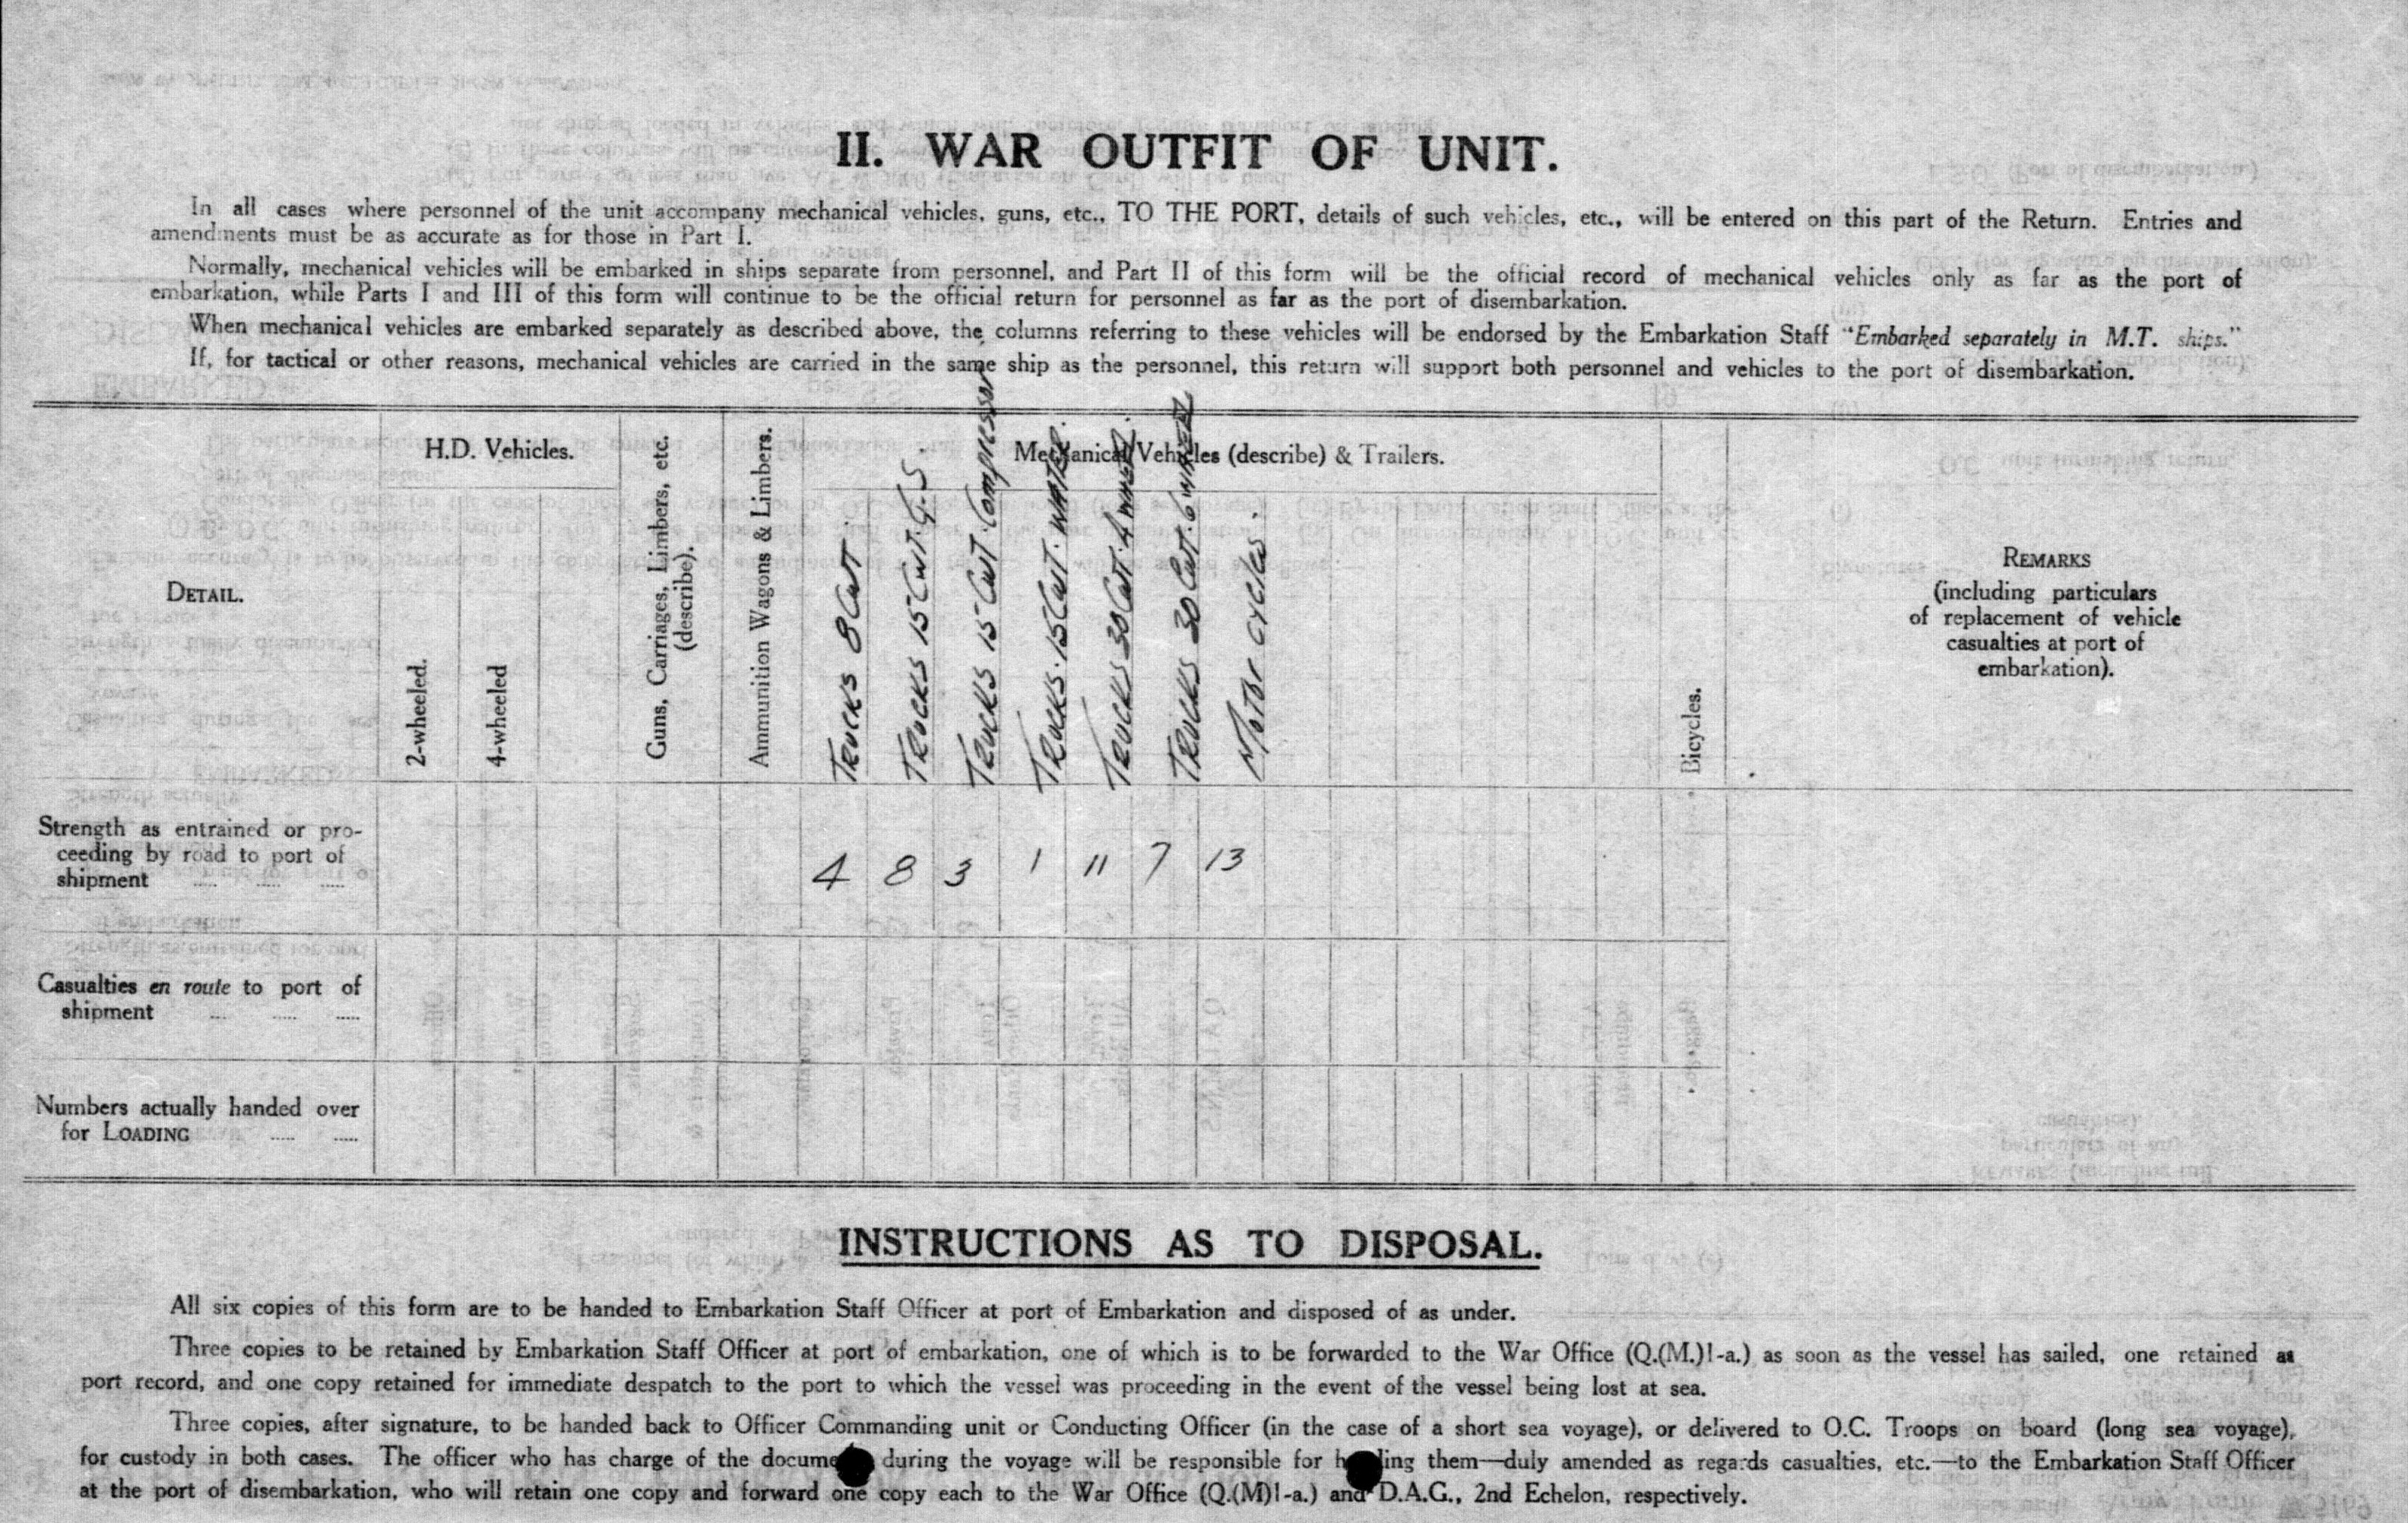 II. WAR OUTFIT OF UNIT.
In all cases where personnel of the unit accompany mechanical vehicles, guns, etc., TO THE PORT, details of such vehicles, etc., will be entered on this part of the Return. Entries and
amendments must be as accurate as for those in Part I.
Normally, mechanical vehicles will be embarked in ships separate from personnel, and Part II of this form will be the official record of mechanical vehicles only as far as the port of
embarkation, while Parts I and III of this form will continue to be the official return for personnel as far as the port of disembarkation.
When mechanical vehicles are embarked separately as described above, the columns referring to these vehicles will be endorsed by the Embarkation Staff "Embarked separately in M.T. ships."
If, for tactical or other reasons, mechanical vehicles are carried in the same ship as the personnel, this return will support both personnel and vehicles to the port of disembarkation.
DETAIL.
H.D. Vehicles.
2-wheeled.
4-wheeled
Guns, Carriages, Limbers, etc.
(describe).
Ammunition Wagons & Limbers.
Mechanical Vehicles (describe) & Trailers.
TRUCKS 8 CWT.
TRUCKS 15 CWT. G.S.
TRUCKS 15 CWT. Compressor
TRUCKS. 15 CWT. WATER.
TRUCKS 30 CWT. 4
TRUCKS 30 CWT. 6 WHEEL
MOTOR CYCLES.
Bicycles.
REMARKS
(including particulars
of replacement of vehicle
casualties at port of
embarkation).
Strength as entrained or pro-
ceeding by road to port of
shipment .... ..... .....
4 8 3 1 11 7 13
Casualties en route to port of
shipment ... ..... .....
Numbers actually handed over
for LOADING ..... .....
INSTRUCTIONS AS TO DISPOSAL.
All six copies of this form are to be handed to Embarkation Staff Officer at port of Embarkation and disposed of as under.
Three copies to be retained by Embarkation Staff Officer at port of embarkation, one of which is to be forwarded to the War Office (Q.(M.)1-a.) as soon as the vessel has sailed, one retained as
port record, and one copy retained for immediate despatch to the port to which the vessel was proceeding in the event of the vessel being lost at sea.
Three copies, after signature, to be handed back to Officer Commanding unit or Conducting Officer (in the case of a short sea voyage), or delivered to O.C. Troops on board (long sea voyage),
for custody in both cases. The officer who has charge of the docume during the voyage will be responsible for h ing them—duly amended as regards casualties, etc.—to the Embarkation Staff Officer
at the port of disembarkation, who will retain one copy and forward one copy each to the War Office (Q.(M)1-a.) and D.A.G., 2nd Echelon, respectively.